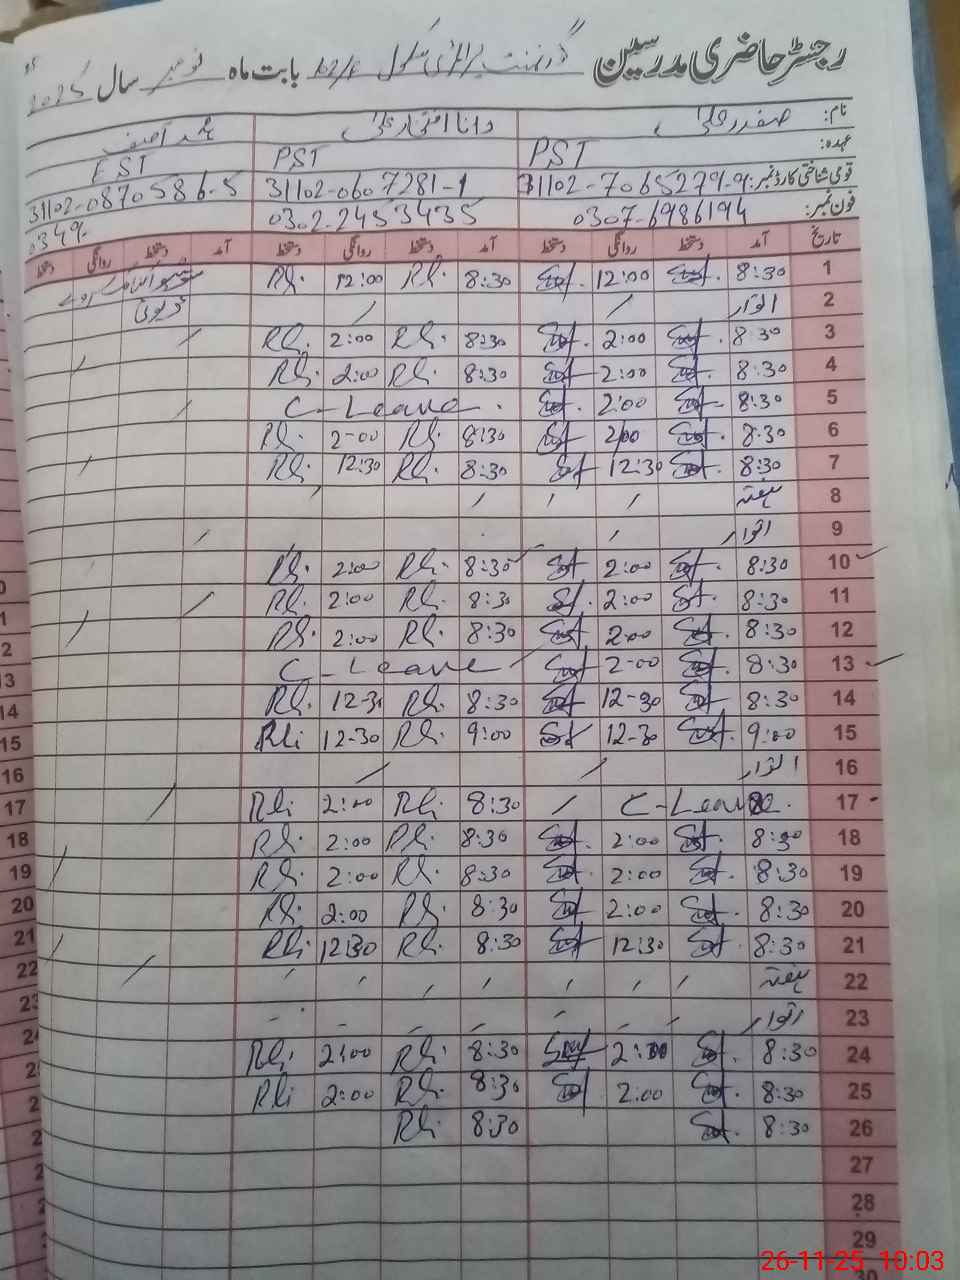 رجسٹر حاضری مدرسین گورنمنٹ پرائمری سکول بابت ماہ نومبر سال 2025
نام: صفدر علی رانا افتخار علی محمد آصف
عہدہ: PST PST EST
قومی شناختی کارڈ نمبر: 31102-7065279-9 31102-0607281-1 31102-0870586-5
فون نمبر: 0307-6986194 0302-2453435 0349-
تاریخ آمد دستخط روانگی دستخط آمد دستخط روانگی دستخط آمد دستخط روانگی دستخط
1 8:30 12:00 8:30 Rli. 12:00 Rli.
2 اتوار ڈیوٹی
3 8:30 2:00 8:30 Rli. 2:00 Rli.
4 8:30 2:00 8:30 Rli. 2:00 Rli.
5 8:30 2:00 C-Leave.
6 8:30 2:00 8:30 Rli. 2-00 Rli.
7 8:30 12:30 8:30 Rli. 12:30 Rli.
8 ہفتہ
9 اتوار
10 8:30 2:00 8:30 Rli. 2:00 Rli.
11 8:30 2:00 8:30 Rli. 2:00 Rli.
12 8:30 2:00 8:30 Rli. 2:00 Rli.
13 8:30 2-00 C-Leave
14 8:30 12-30 8:30 Rli. 12-30 Rli.
15 9:00 12-30 9:00 Rli. 12-30 Rli
16 اتوار
17 C-Leave. 8:30 Rli. 2:00 Rli
18 8:30 2:00 8:30 Rli. 2:00 Rli.
19 8:30 2:00 8:30 Rli. 2:00 Rli.
20 8:30 2:00 8:30 Rli. 2:00 Rli.
21 8:30 12:30 8:30 Rli. 12:30 Rli.
22 ہفتہ
23 اتوار
24 8:30 2:00 8:30 Rli. 2:00 Rli
25 8:30 2:00 8:30 Rli. 2:00 Rli
26 8:30 8:30 Rli.
27
28
29
30
26-11-25 10:03